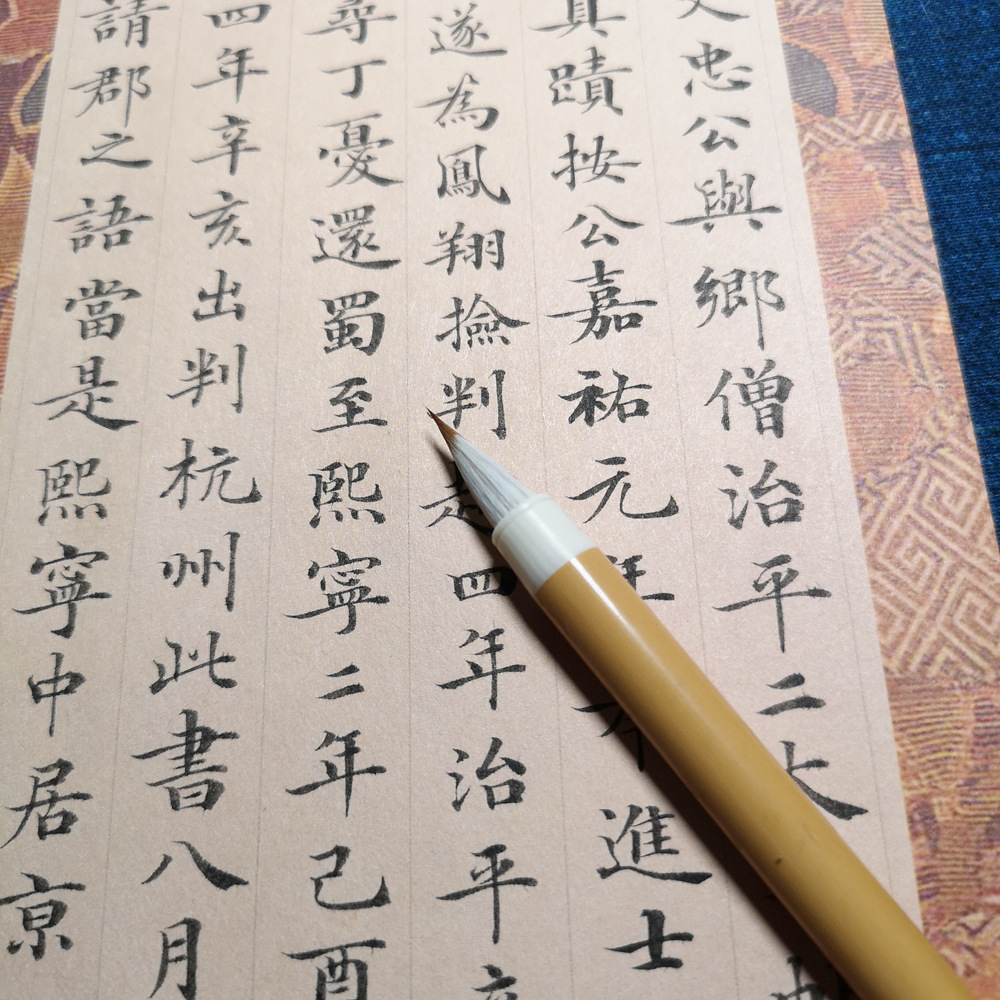 忠公與鄉僧治平二大
真蹟按公嘉祐元年進士
遂為鳳翔撿判是四年治平
尋丁憂還蜀至熙寧二年己酉
四年辛亥出判杭州此書八月
請郡之語當是熙寧中居京